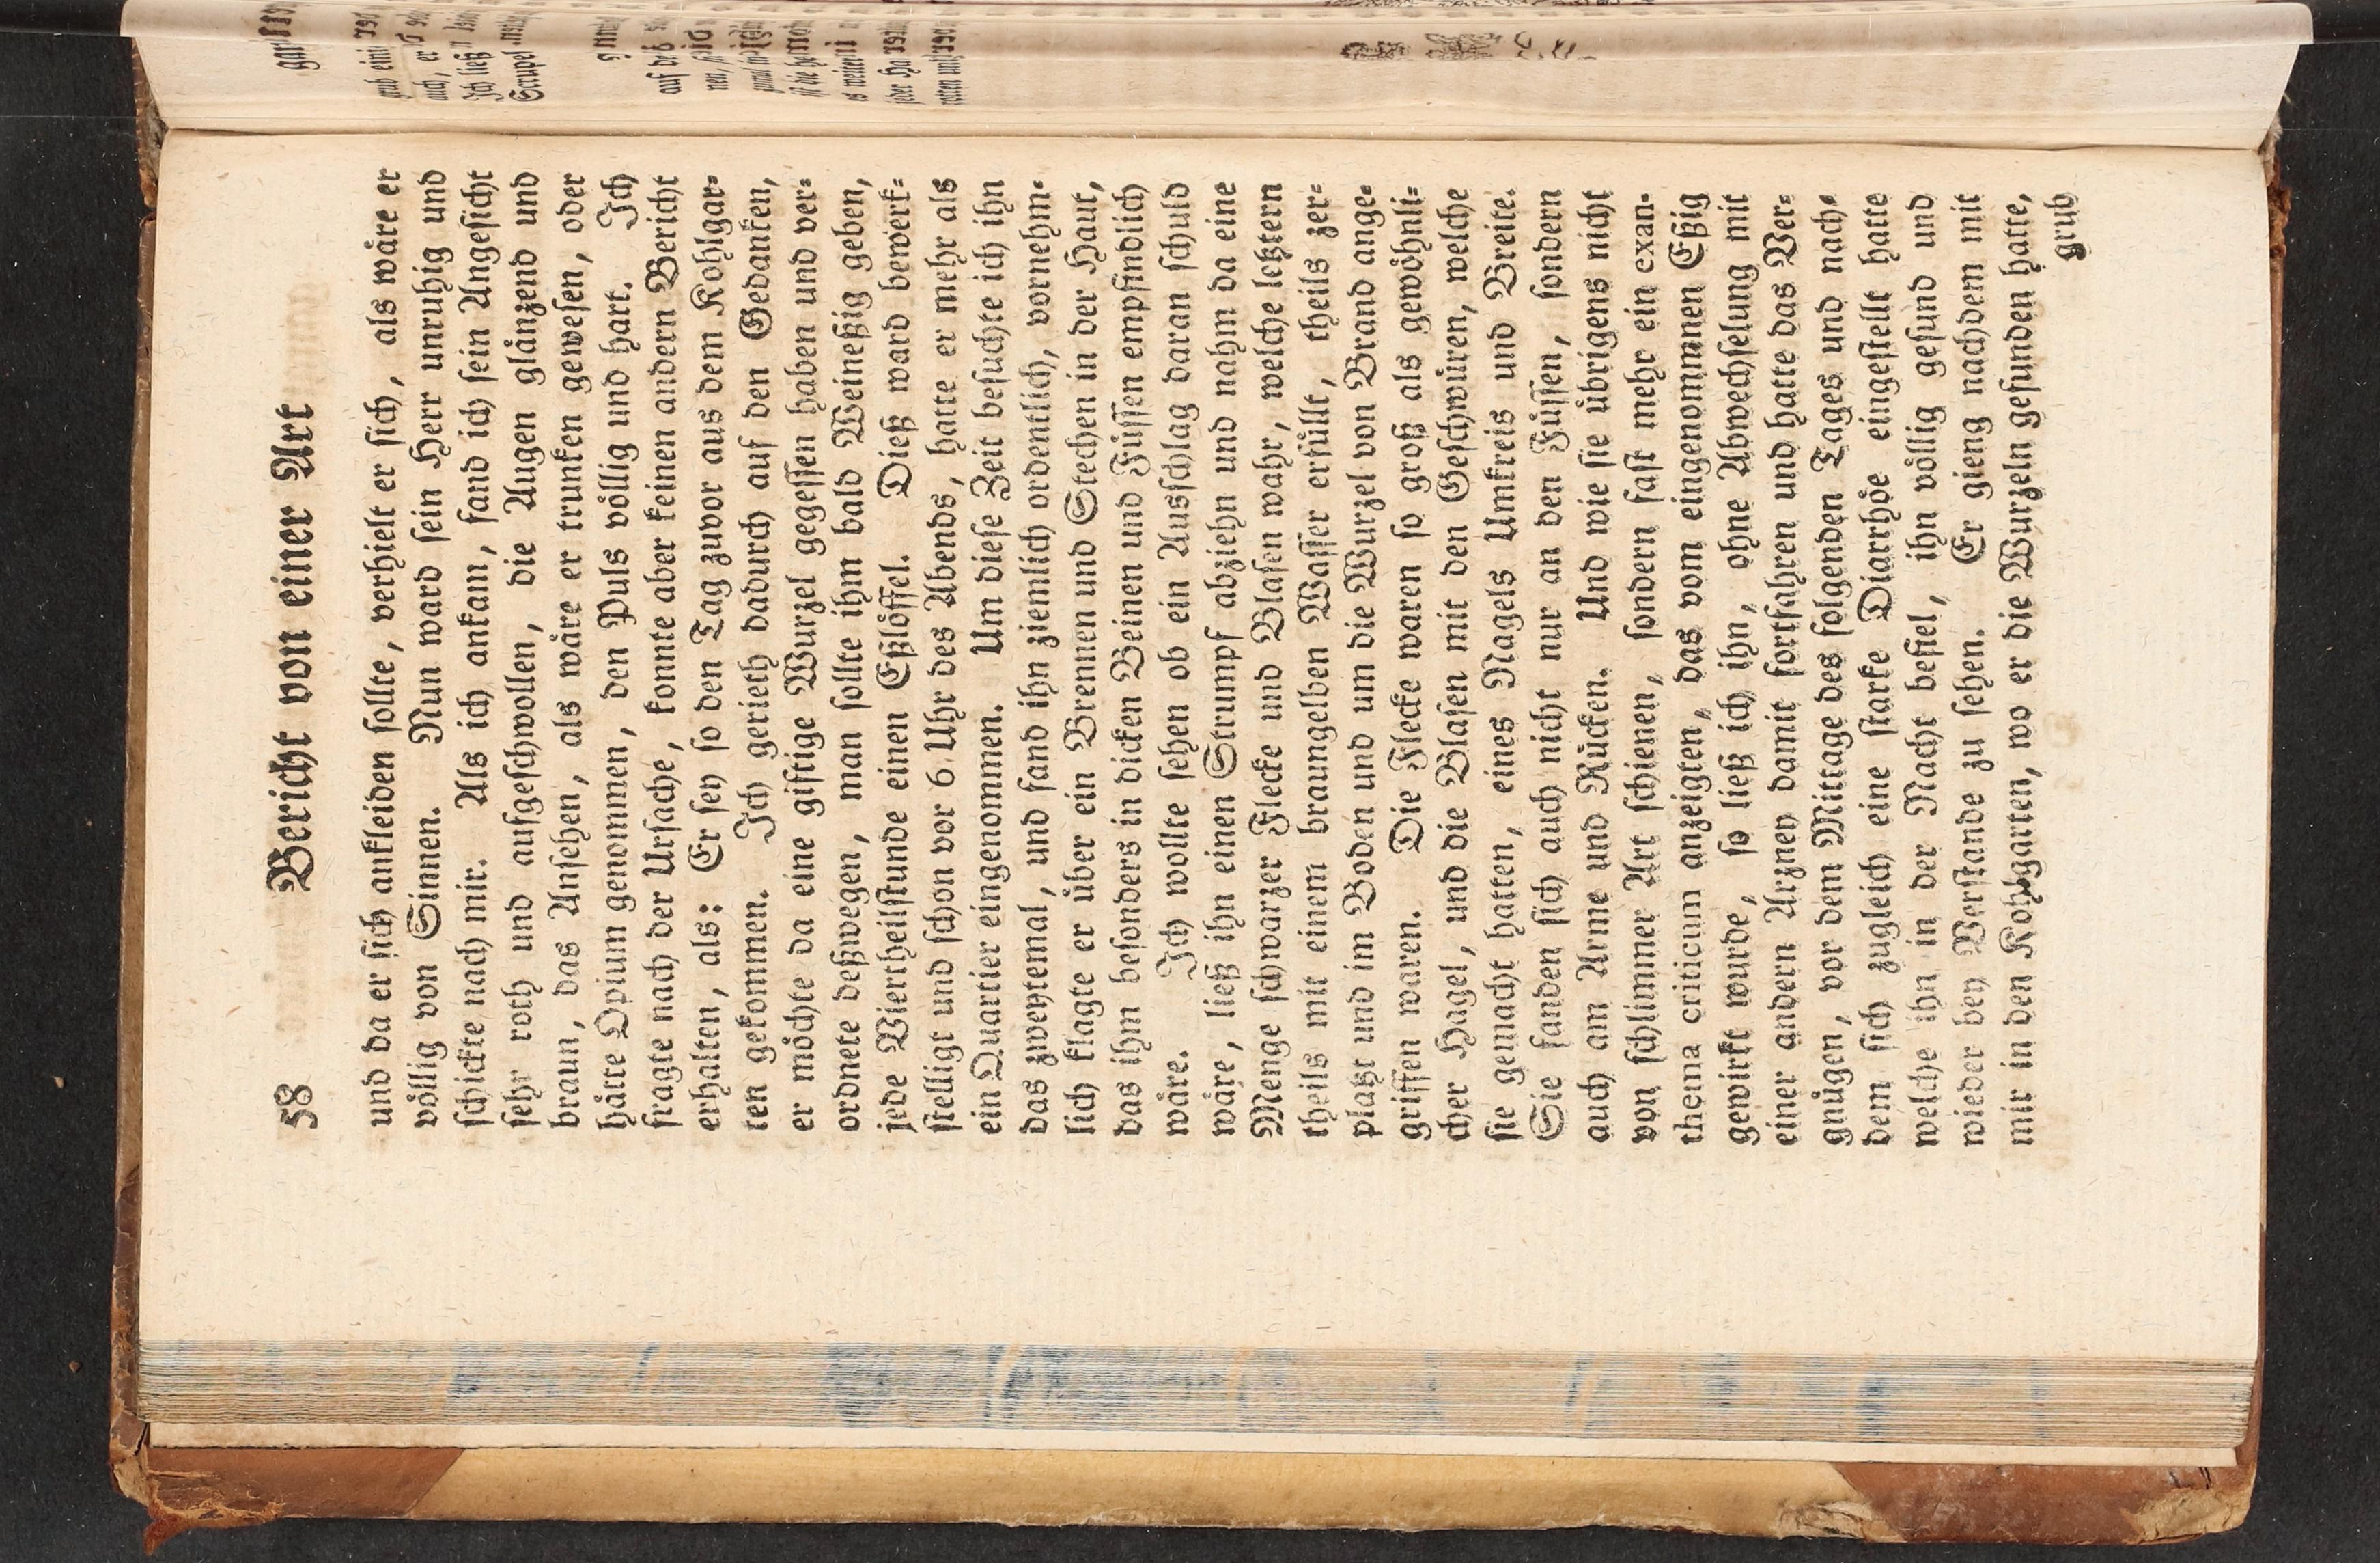 58 Bericht von einer Art
und da er ſich ankleiden ſollte, verhielt er ſich, als wäre er
völlig von Sinnen. Nun ward ſein Herr unruhig und
ſchickte nach mir. Als ich ankam, fand ich ſein Angeſicht
ſehr roth und aufgeſchwollen, die Augen glänzend und
braun, das Anſehen, als wäre er trunken geweſen, oder
hätte Opium genommen, den Puls völlig und hart. Ich
fragte nach der Urſache, konnte aber keinen andern Bericht
erhalten, als: Er ſey ſo den Tag zuvor aus dem Kohlgar⸗
ten gekommen. Ich gerieth dadurch auf den Gedanken,
er möchte da eine giftige Wurzel gegeſſen haben und ver⸗
ordnete deßwegen, man ſollte ihm bald Weineßig geben,
jede Viertheilſtunde einen Eßlöffel. Dieß ward bewerk⸗
ſtelligt und ſchon vor 6. Uhr des Abends, hatte er mehr als
ein Quartier eingenommen. Um dieſe Zeit beſuchte ich ihn
das zweytemal, und fand ihn ziemlich ordentlich, vornehm⸗
lich klagte er über ein Brennen und Stechen in der Haut,
das ihm beſonders in dicken Beinen und Füſſen empfindlich
wäre. Ich wollte ſehen ob ein Ausſchlag daran ſchuld
wäre, ließ ihn einen Strumpf abziehn und nahm da eine
Menge ſchwarzer Flecke und Blaſen wahr, welche letztern
theils mit einem braungelben Waſſer erfüllt, theils zer⸗
platzt und im Boden und um die Wurzel von Brand ange⸗
griffen waren. Die Flecke waren ſo groß als gewöhnli⸗
cher Hagel, und die Blaſen mit den Geſchwüren, welche
ſie gemacht hatten, eines Nagels Umkreis und Breite.
Sie fanden ſich auch nicht nur an den Füſſen, ſondern
auch am Arme und Rücken. Und wie ſie übrigens nicht
von ſchlimmer Art ſchienen, ſondern faſt mehr ein exan⸗
thema criticum anzeigten, das vom eingenommnen Eßig
gewirkt wurde, ſo ließ ich ihn, ohne Abwechſelung mit
einer andern Arzney damit fortfahren und hatte das Ver⸗
gnügen, vor dem Mittage des folgenden Tages und nach⸗
dem ſich zugleich eine ſtarke Diarrhöe eingeſtellt hatte
welche ihn in der Nacht befiel, ihn völlig geſund und
wieder bey Verſtande zu ſehen. Er gieng nachdem mit
mir in den Kohlgarten, wo er die Wurzeln gefunden hatte,
grub